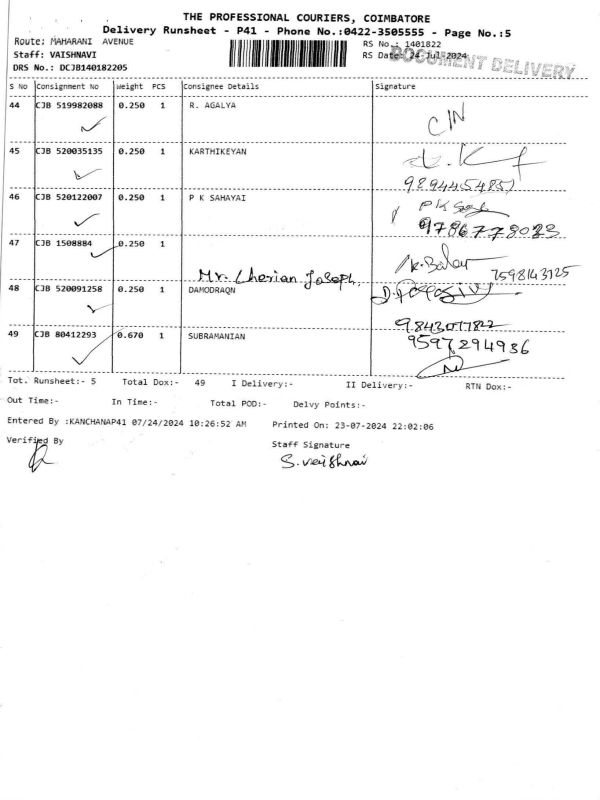 THE PROFESSIONAL COURIERS, COIMBATORE
Delivery Runsheet - P41 - Phone No.:0422-3505555 - Page No.:5
Route: MAHARANI AVENUE RS No.: 1401822
Staff: VAISHNAVI RS Date: 24-Jul-2024
DRS No.: DCJB140182205
DOCUMENT DELIVERY
S No Consignment No Weight PCS Consignee Details Signature
44 CJB 519982088 0.250 1 R. AGALYA
45 CJB 520035135 0.250 1 KARTHIKEYAN
9894454857
46 CJB 520122007 0.250 1 P K SAHAYAI
9786778023
47 CJB 1508884 0.250 1
Mr. Cherian Joseph. 7598143725
48 CJB 520091258 0.250 1 DAMODRAQN
9843077822
49 CJB 80412293 0.670 1 SUBRAMANIAN 9597294936
Tot. Runsheet:- 5 Total Dox:- 49 I Delivery:- II Delivery:- RTN Dox:-
Out Time:- In Time:- Total POD:- Delvy Points:-
Entered By :KANCHANAP41 07/24/2024 10:26:52 AM Printed On: 23-07-2024 22:02:06
Verified By Staff Signature
S. vaishnavi